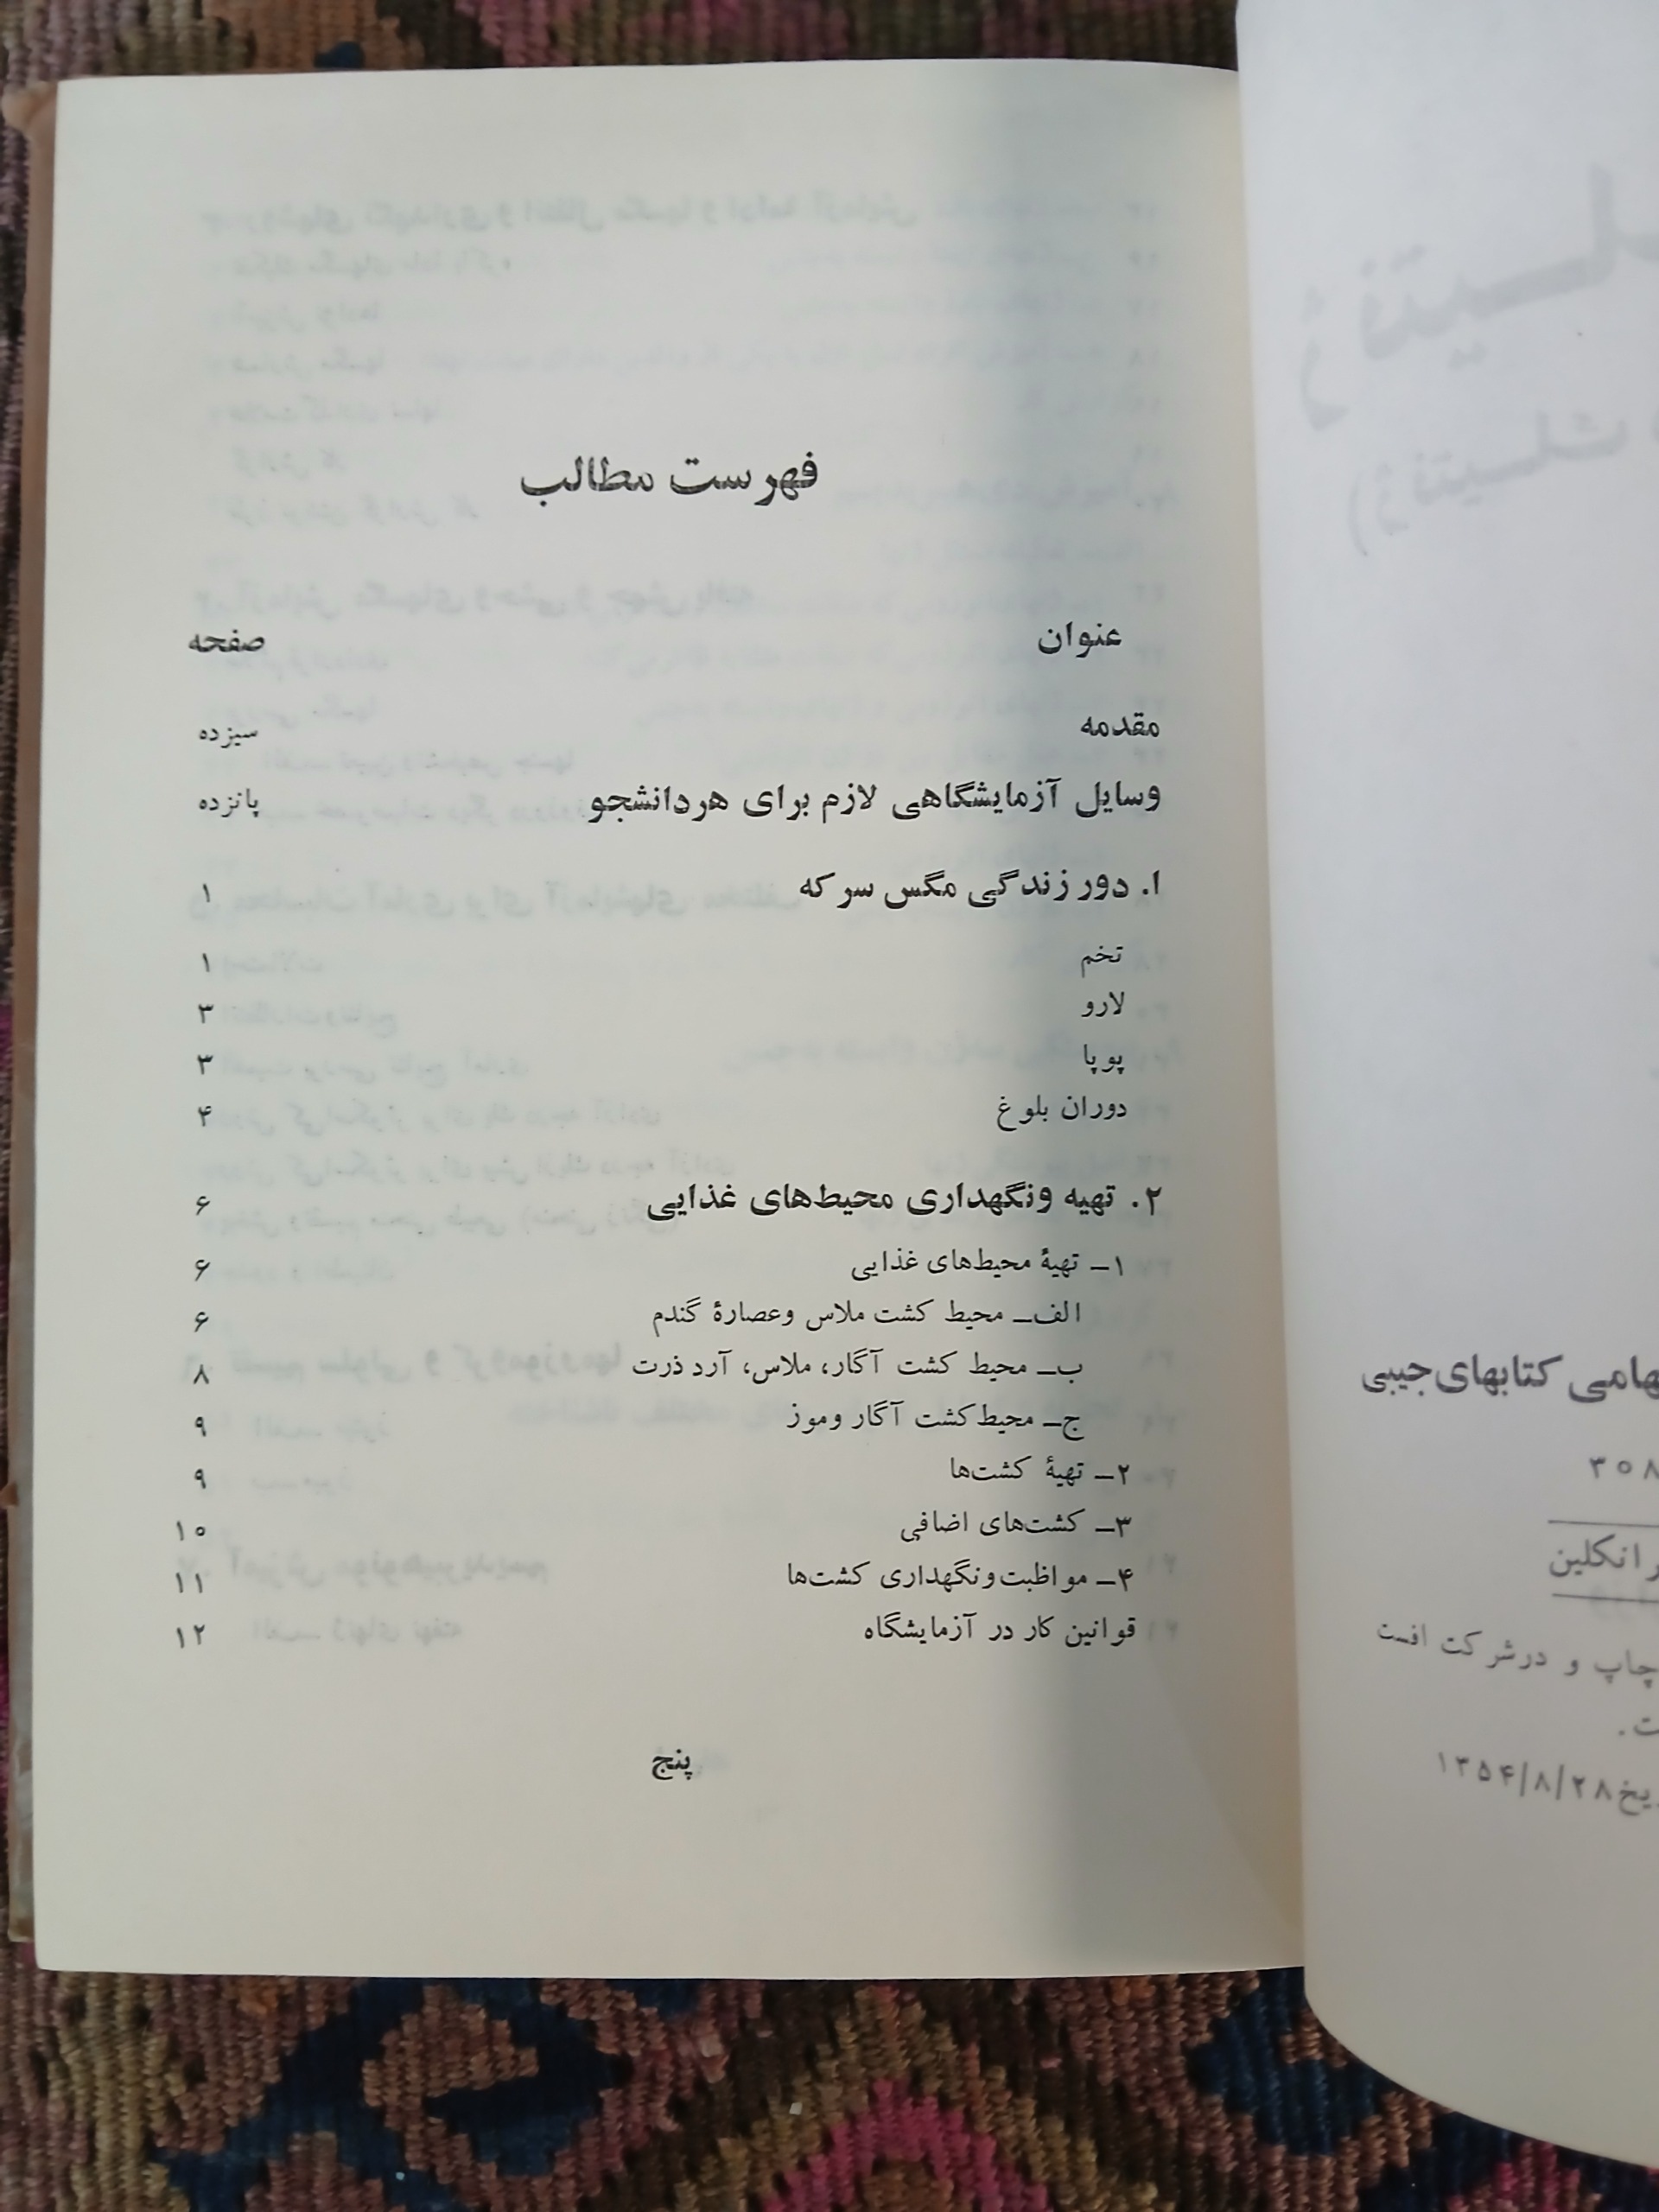 فهرست مطالب
عنوان صفحه
مقدمه سیزده
وسایل آزمایشگاهی لازم برای هردانشجو پانزده
۱. دور زندگی مگس سرکه ۱
تخم ۱
لارو ۳
پوپا ۳
دوران بلوغ ۴
۲. تهیه ونگهداری محیط‌های غذایی ۶
۱ــ تهیهٔ محیط‌های غذایی ۶
الف‌ــ محیط کشت ملاس وعصارهٔ گندم ۶
ب‌ــ محیط کشت آگار، ملاس، آرد ذرت ۸
ج‌ــ محیط کشت آگار وموز ۹
۲ــ تهیهٔ کشت‌ها ۹
۳ــ کشت‌های اضافی ۱۰
۴ــ مواظبت ونگهداری کشت‌ها ۱۱
قوانین کار در آزمایشگاه ۱۲
پنج
کتابهای جیبی
چاپ و درشرکت افست
۱۳۵۴/۸/۲۸